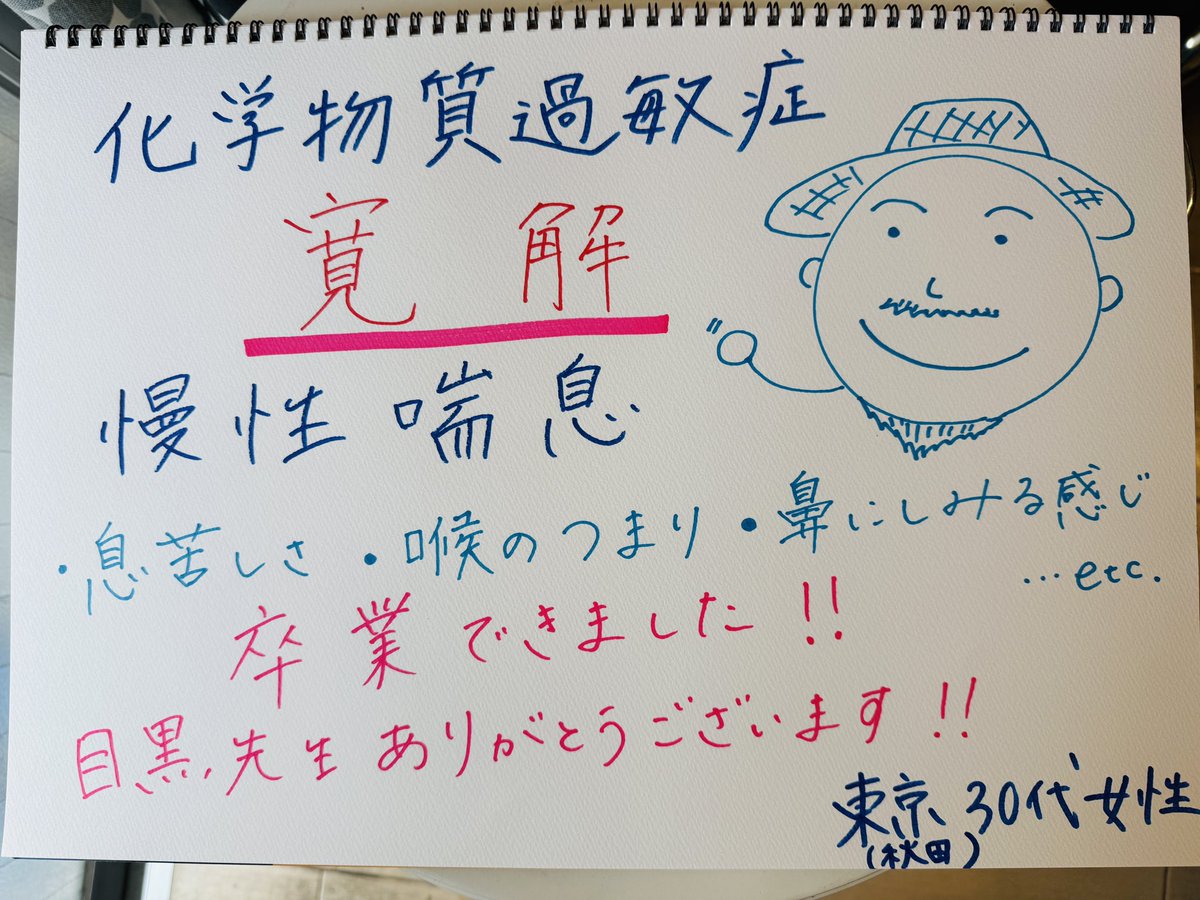 化学物質過敏症
寛解
慢性喘息
・息苦しさ・喉のつまり・鼻にしみる感じ
…etc.
卒業できました!!
目黒先生ありがとうございます!!
東京30代女性
(秋田)